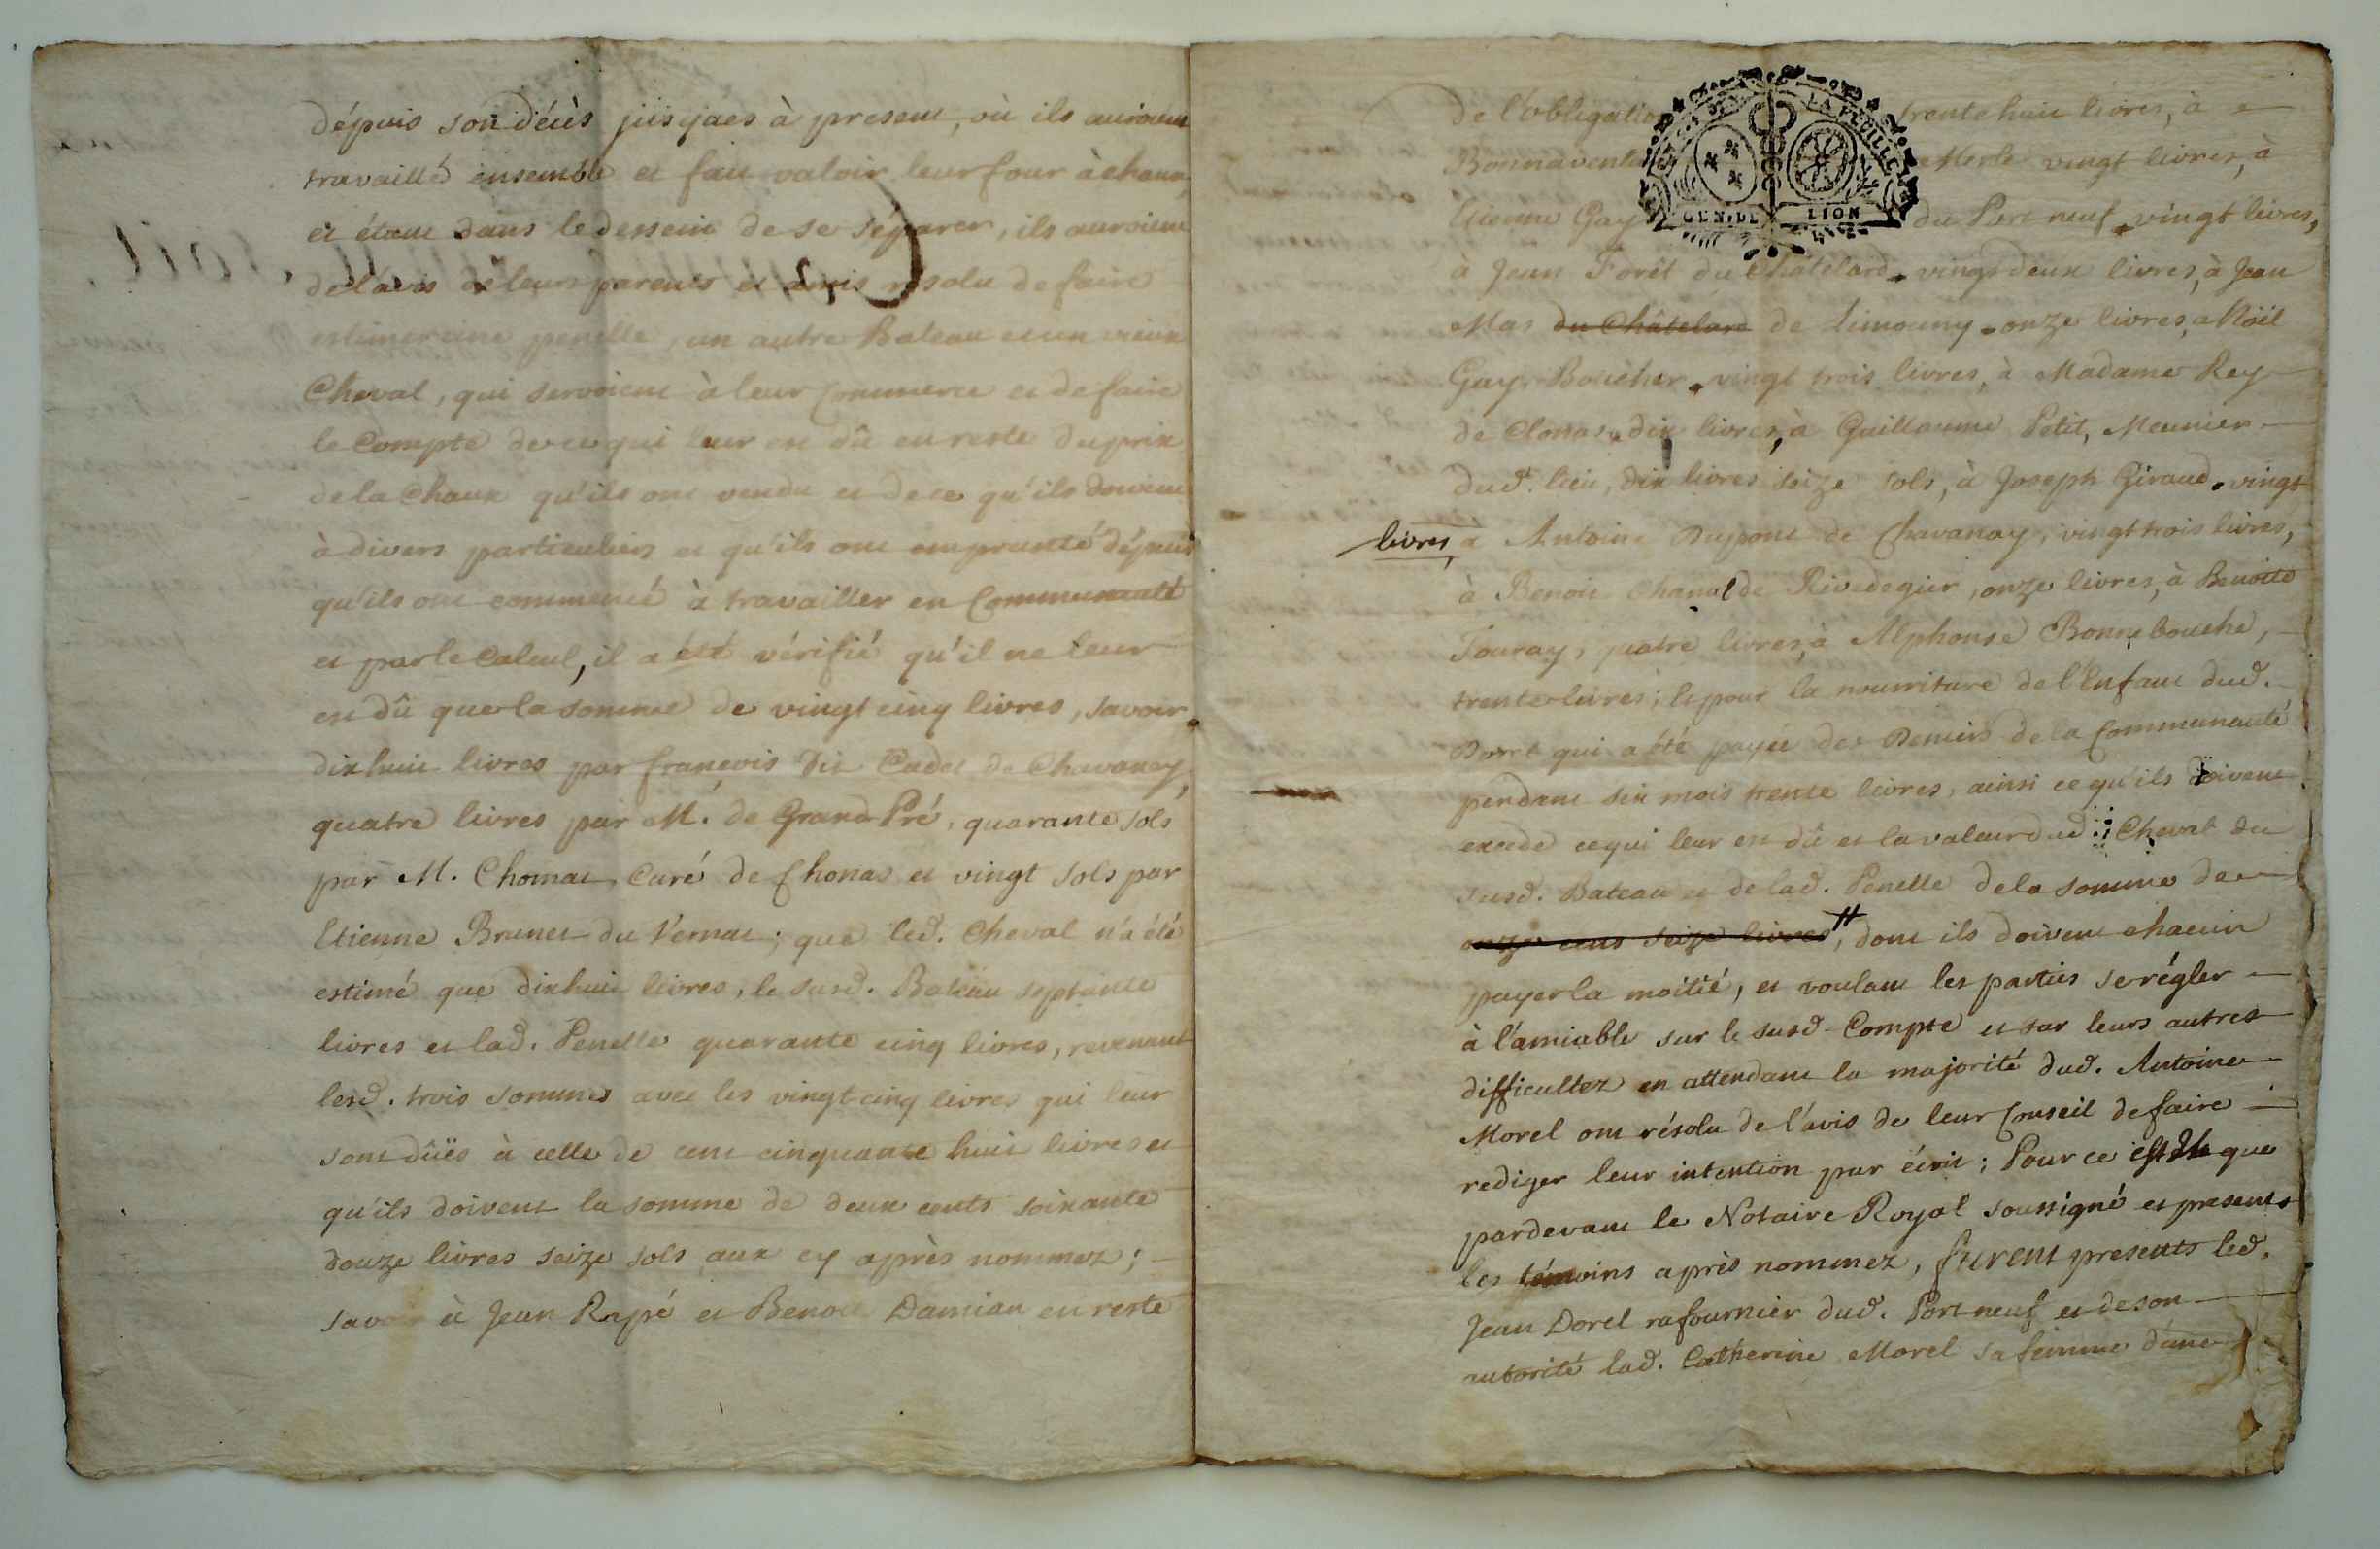 dépuis son décès jusques à present, où ils auroient
travaillé ensemble et fait valoir leur four à chaux,
et étant dans le dessein de se séparer, ils auroient
de l'avis de leurs parents et amis résolu de faire
estimer une penelle, un autre Bateau et un vieux
Cheval, qui servoient à leur Commerce et de faire
le Compte de ce qui leur est dû en reste du prix
de la Chaux qu'ils ont vendu et de ce qu'ils doivent
à divers particuliers et qu'ils ont emprunté dépuis
qu'ils ont commencé à travailler en Communauté
et par le Calcul, il a été vérifié qu'il ne leur
est dû que la somme de vingt cinq livres, savoir
dix huit livres par francois dit Cadet de Chavanay,
quatre livres par M. de Grand Pré, quarante sols
par M. Chomat Curé de Chonas et vingt sols par
Etienne Brunet du Vernat; que led. Cheval n'a été
estimé que dixhuit livres, le susd. Bateau septante
livres et lad. Penelle quarante cinq livres, revenant
lesd. trois sommes avec les vingt cinq livres qui leur
sont dûës à celle de cent cinquante huit livres et
qu'ils doivent la somme de deux cents soixante
douze livres seize sols aux cy après nommez;
savoir à Jean Rapé et Benoit Damian en reste
de l'obligation trente huit livres, à
Bonnaventure Merle vingt livres, à
Etienne Gay du Port neuf vingt livres,
GEN. DE LION
LA FEUILLE
à Jean Forêt du Châtelard vingt deux livres, à Jean
Mas du Châtelard de Limouny onze livres, a Noël
Gay Boucher vingt trois livres, à Madame Rey
de Clonas dix livres, à Guillaume Petit, Meunier
dud. lieu, dix livres seize sols, à Joseph Giraud vingt
livres, à Antoine Dupont de Chavanay, vingt trois livres,
à Benoit Chanal de Rivedegier, onze livres, à Benoite
Touray, quatre livres, à Alphonse Bonnebouche,
trente livres; et pour la nourriture de l'Enfant dud.
Dorel qui a été payée des Deniers de la Communauté
pendant six mois trente livres, ainsi ce qu'ils doivent
excede ce qui leur est dû et la valeur dud. Cheval du
susd. Bateau et de lad. Penelle de la somme de
onze cens seize livres, dont ils doivent chacun
payer la moitié, et voulant les parties se régler
à l'amiable sur le susd. Compte et sur leurs autres
difficultez en attendant la majorité dud. Antoine
Morel ont résolu de l'avis de leur Conseil de faire
rediger leur intention par écrit; Pour ce est il que
pardevant le Notaire Royal soussigné et presents
les témoins après nommez, furent presents led.
Jean Dorel rafournier dud. Port neuf et de son
autorité lad. Catherine Morel sa femme d'une